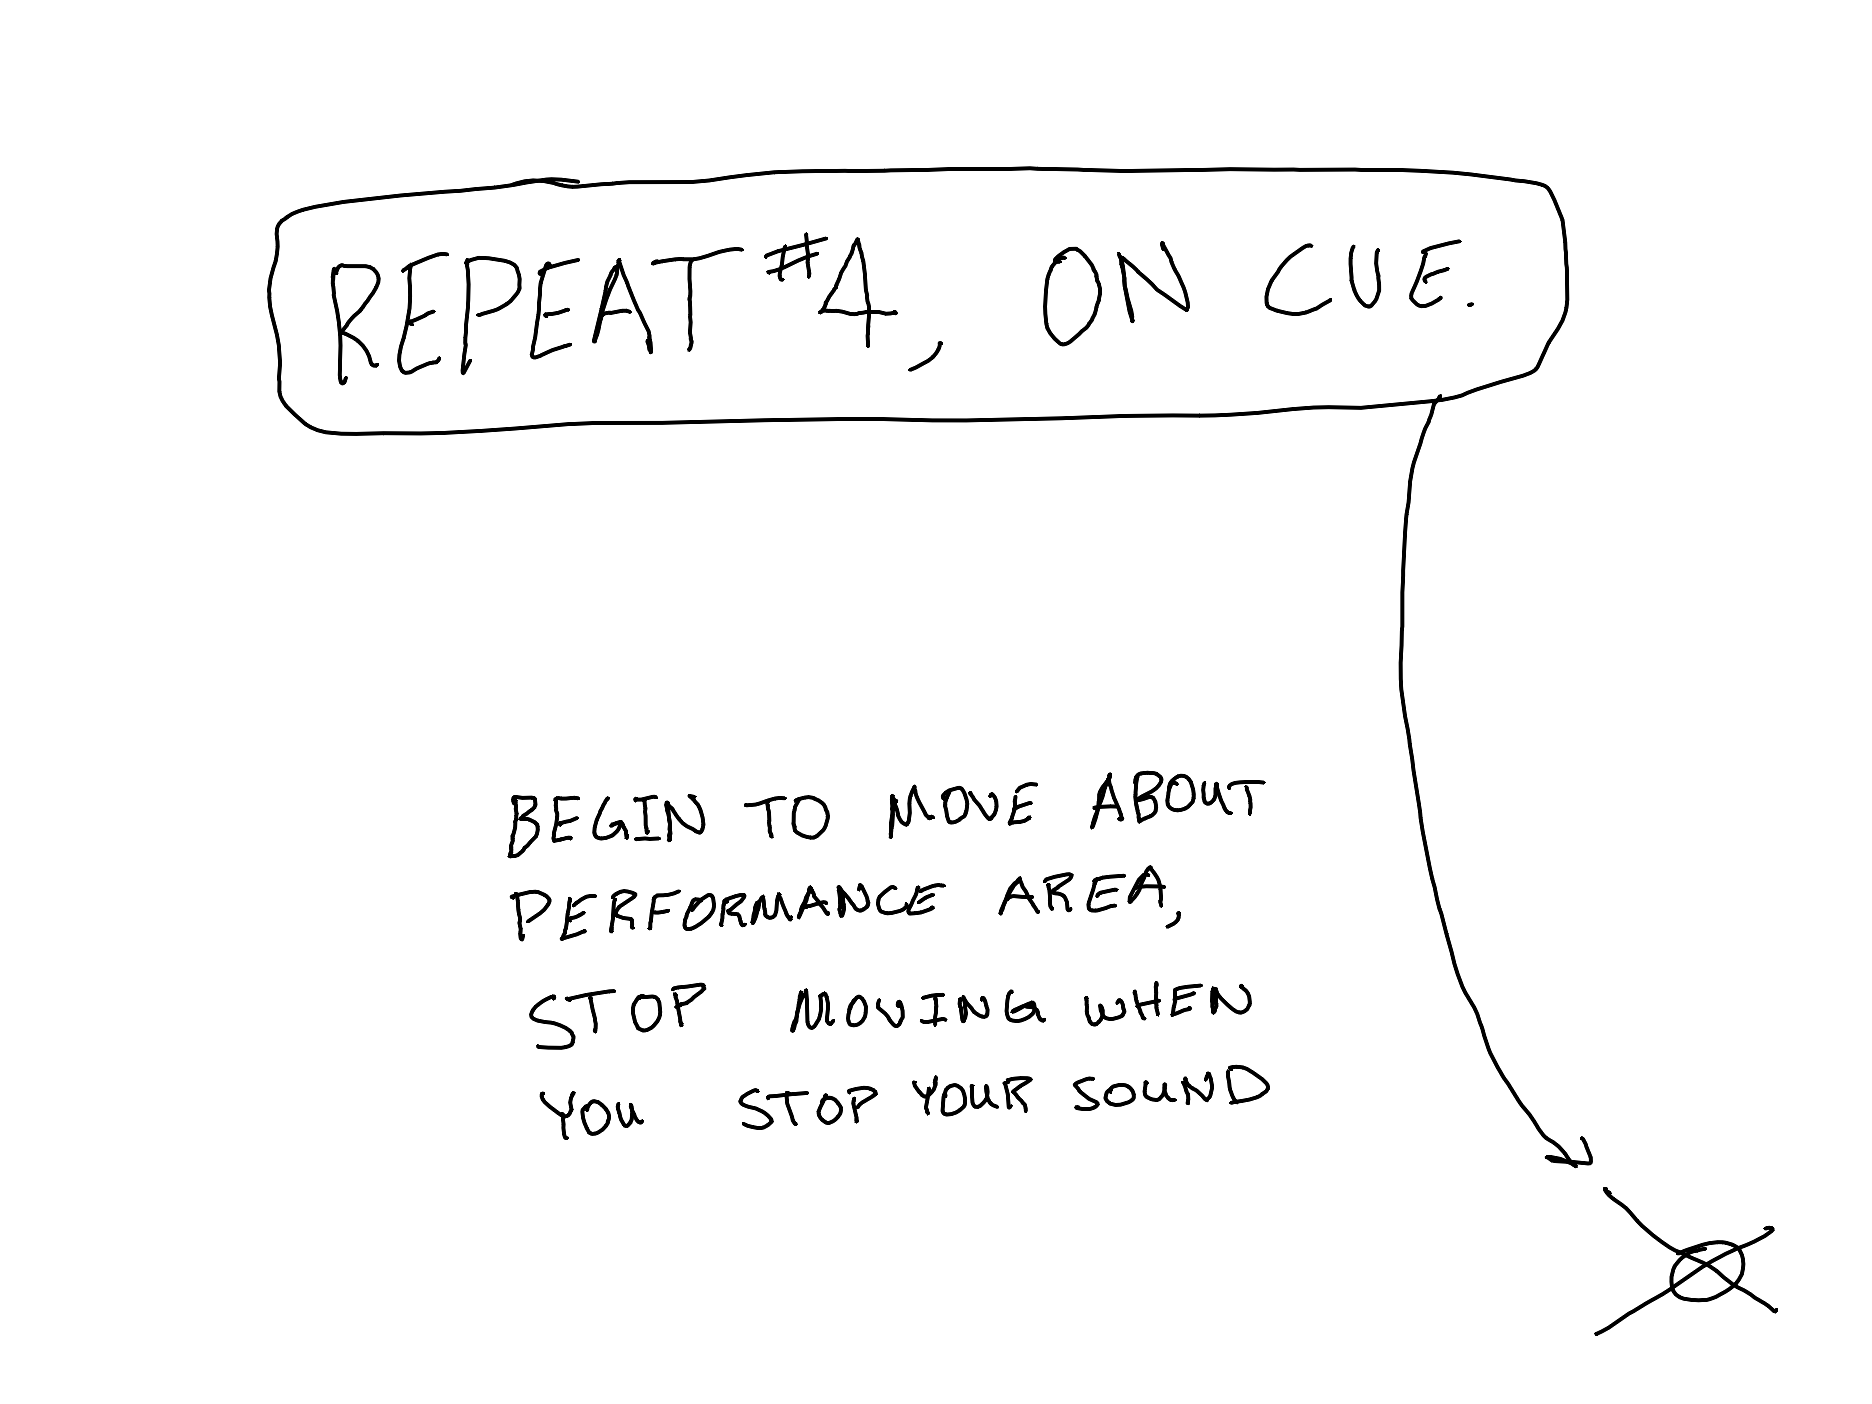 REPEAT #4, ON CUE.
BEGIN TO MOVE ABOUT
PERFORMANCE AREA,
STOP MOVING WHEN
YOU STOP YOUR SOUND